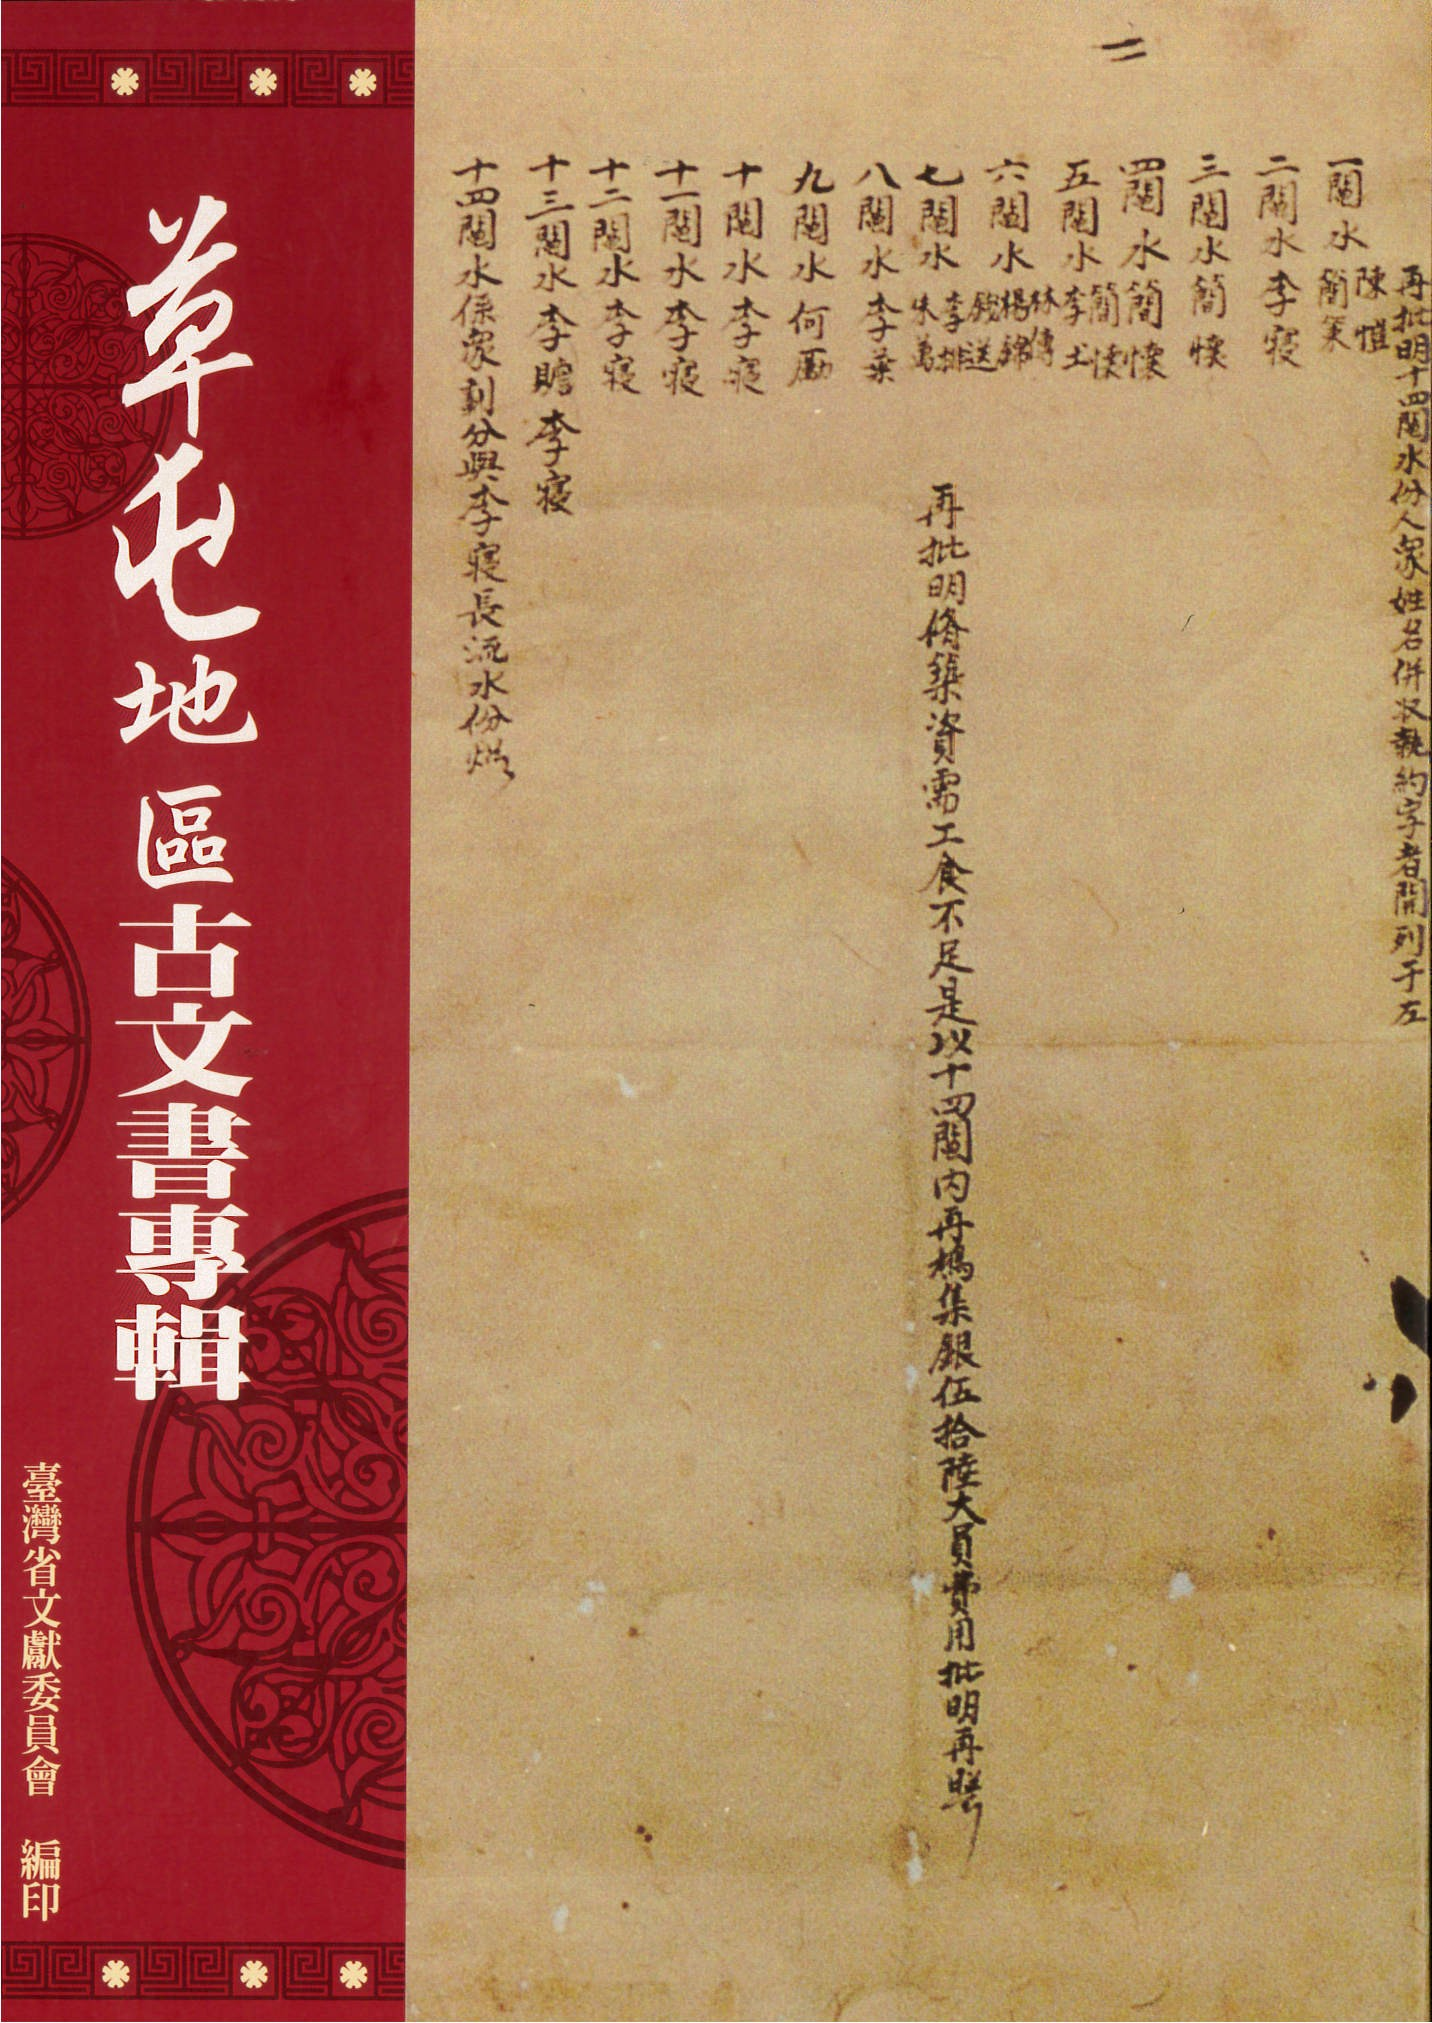 草屯地區古文書專輯
臺灣省文獻委員會 編印
再批明十四鬮水份人眾姓名併收執約字者開列于左
一鬮水 陳愷 簡策
二鬮水李寢
三鬮水簡懷
四鬮水簡懷
五鬮水 簡懷 李尤
六鬮水 林傳 楊錦 錢送
七鬮水 李排 朱萬
八鬮水李葉
九鬮水何勵
十鬮水李寢
十一鬮水李寢
十二鬮水李寢
十三鬮水李瞻李寢
十四鬮水係眾劃分與李寢長流水份
再批明脩築資需工食不足是以十四鬮內再鳩集銀伍拾陸大員費用批明再照